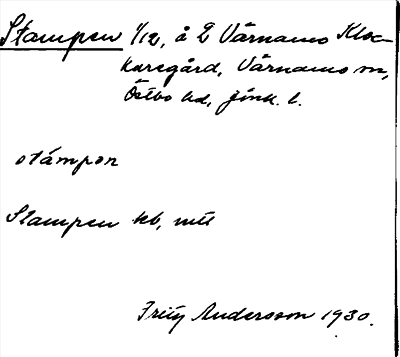 Stampen 1/12, å 2 Värnamo Kloc-
karegård, Värnamo sn,
Östbo hd, Jönk. l.
stámpən
Stampen kb,
Fritz Andersson 1930.